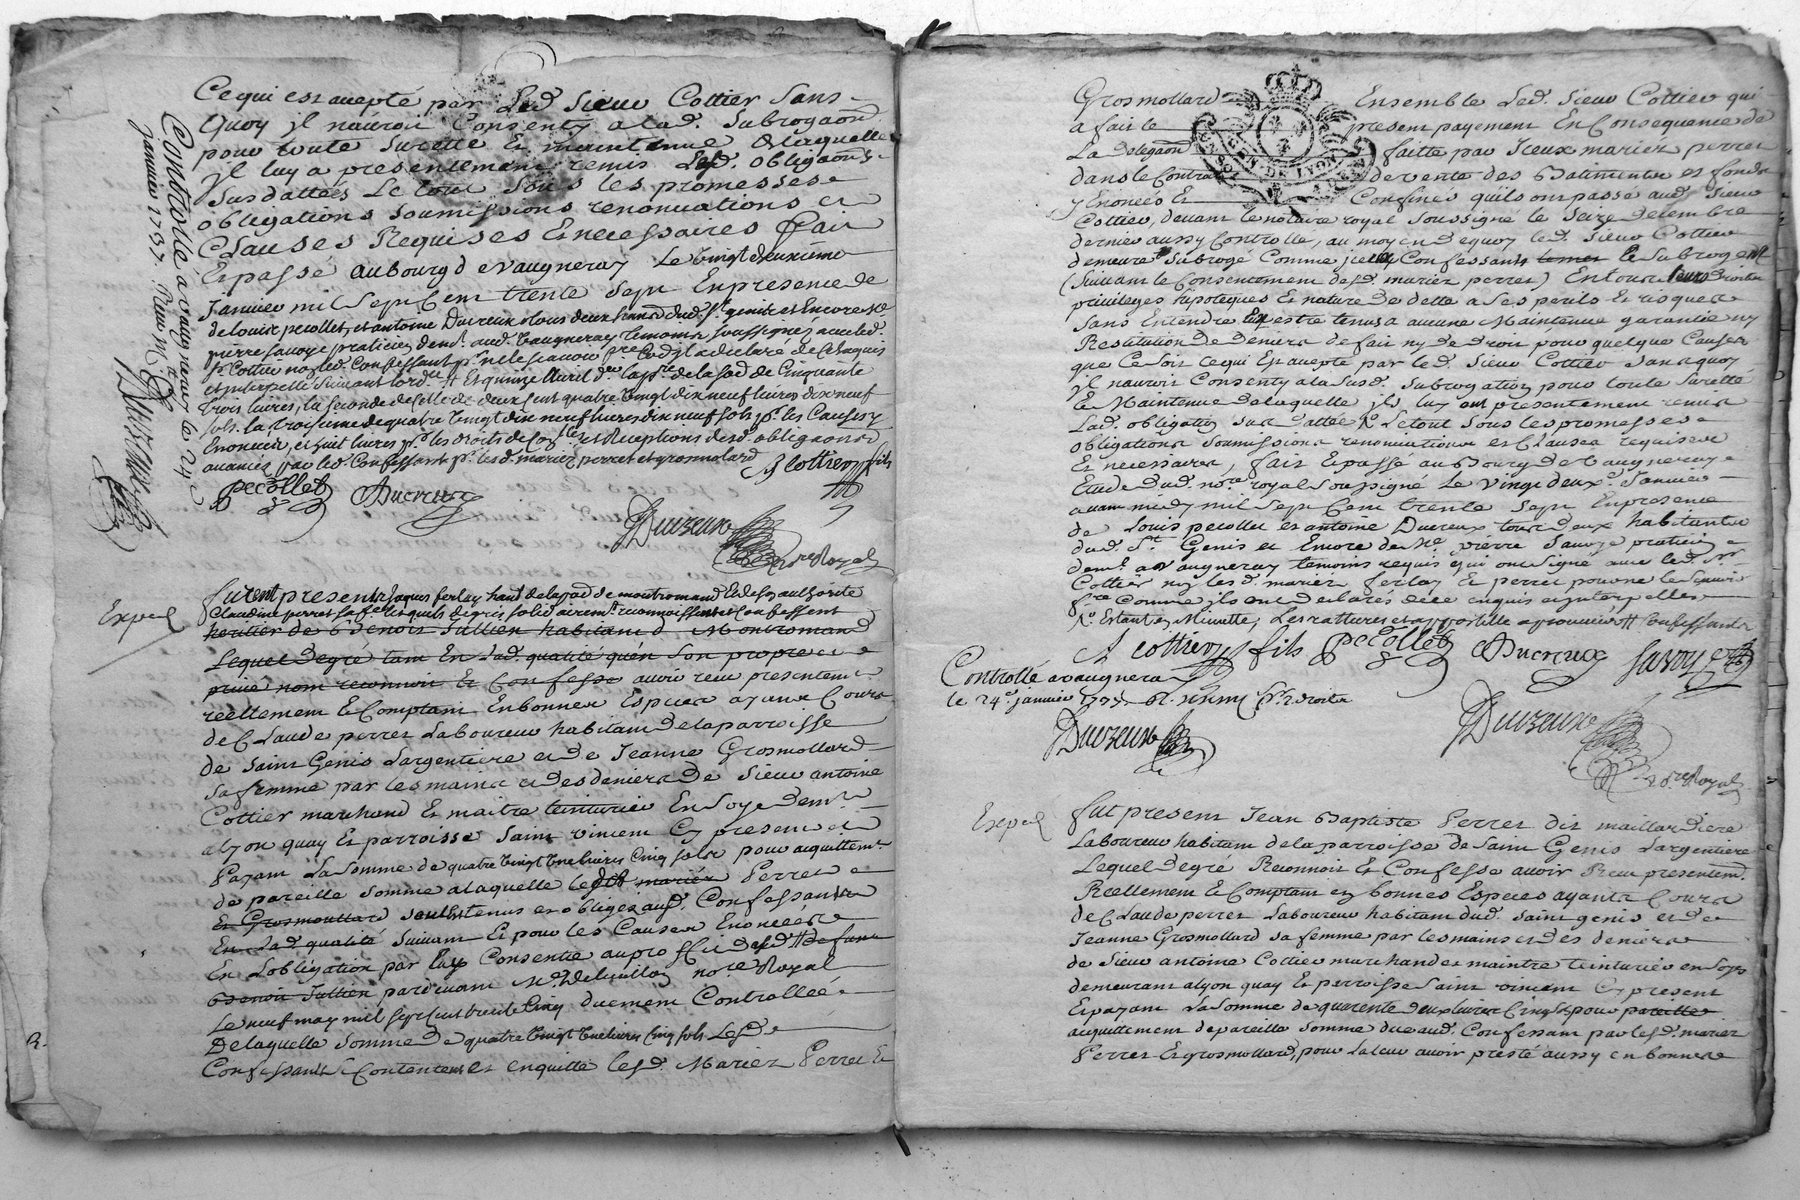 Ce qui est acepté par Led. Sieur Cottier Sans
quoy il n'auroit Consenty a lad. Subrogaon
pour toute surette Et maintenue de laquelle
il luy a presentement remis Lesd. obligaons
Susdattées Le tout Sous les promesses
obligations soumissions renonciations et
Clauses Requises Et necessaires fait
Et passé au bourg de vaugneray Le vingt deuxieme
Janvier mil Sept Cent trente sept En presence de
de louis pecollet, et antoine Ducreux tous deux habt dud. st. genis et Encore Me
pierre Savoye praticien demt. aud. Vaugneray temoins soussignés avec led.
sr. Cottier
et interpellé suivant lord.
trois livres, la seconde de Celle de deux cent quatre vingt dix neuf livres dix neuf
sols. la troisieme de quatre vingt dix neuf livres dix neuf sols pr. les Causes y
Enoncées, et huit livres pr. les droits de
avancés par led. Confessant pr. lesd. mariez perret et grosmolard
A Cottier fils
pecollet Ducreux
Duvzeux
nore Royal
Controllé a vaugneray le 24
Janvier 1737.
Exped
furent presents Jaques ferlay habt. de la par de montromand Et de son authorité
Claudine perret sa fe. lesquels de gré solidairemt. reconnoissent et Confessent
heritier de Benoit Jullien habitant d Montromand
Lequel de gré tant En lad. qualité qu'en son propre et
privé nom reconnoit Et Confesse avoir reçu presentemt.
reellement Et Comptant En bonnes Especes ayant Cours
de Claude perret Laboureur habitant de la parroisse
de Saint Genis Largentiere et de Jeanne Grosmollard
sa femme par les mains et des deniers de Sieur antoine
Cottier marchand Et maitre teinturier En Soye demt.
a lyon quay Et parroisse Saint vincent Cy present et
Payant La somme de quatre vingt livres Cinq sols pour acquittemt.
de pareille somme a laquelle le mariez Perret et
Et Grosmoullard tenus et obliges aud. Confessants
En lad. qualité suivant Et pour les Causes Enoncées
En L'obligation par Eux Consentie au proffit de
Benoit Jullien pardevant Me. nore Royal
Le neuf may mil sept cent trente Cinq duement Controllée
De laquelle somme de quatre vingt livres Cinq sols Lesd.
Confessants Contentent et enquitte lesd. Mariez Perret Et
Grosmollard Ensemble Led. Sieur Cottier qui
a fait le present payement En Consequence de
La delegaon faitte par Iceux mariez perret
dans le Contrat de vente des Batiments et fonds
y Enoncés Et Confinés qu'ils ont passé aud. Sieur
GENERAL. DE LYON
Cottier, devant le notaire royal soussigné le seize decembre
dernier aussy Controllé, au moyen dequoy led. Sieur Cottier
demeure Subrogé Comme Confessants le Subrogent
(suivant le Consentement desd. mariez perret) En tous leurs droits
privileges hipoteques Et nature de dette a ses perils Et risques
sans Entendre Estre tenus a aucune Maintenue garantie ny
Restitution de deniers de fait ny de droit pour quelque Cause
que Ce soit Ce qui Est acepté par led. Sieur Cottier sans quoy
il n'auroit Consenty a la susd. subrogation, pour toute Suretté
Et Maintenue de laquelle ils luy ont presentement remis
Lad. obligation sus dattée Et Le tout sous les promesses
obligations soumissions renonciations et Clauses requises
Et necessaires, fait Et passé au Bourg de Vaugneray
Etude dud. nore royal soussigné Le vingt deuxe. Janvier
avant midy mil sept Cent trente sept En presence
de Louis pecollet et antoine Ducreux tous deux habitants
dud. St. Genis et Encore de Me. pierre Savoye praticien
demt. a Vaugneray temoins requis qui ont signé avec led. sr.
Cottier ny lesd. mariez ferlay Et perret pour ne le sçavoir
fre. Comme ils ont declarés de ce enquis et interpellés
A Cottier fils pecollet Ducreux Savoye
Controllé a vaugneray
le 24e. janvier 1737.
Duvzeux
Duvzeux
nore Royal
Exped
fut present Jean Baptiste Perret dit maillardiere
Laboureur habitant de la parroisse de Saint Genis Largentiere
Lequel de gré Reconnoit Et Confesse avoir Receu presentemt.
Reellement Et Comptant en bonnes Especes ayants Cours
de Claude perret Laboureur habitant dud. saint genis et de
Jeanne Grosmollard sa femme par les mains et des deniers
de Sieur antoine Cottier marchand et maintre teinturier en soye
demeurant a lyon quay Et perroisse Saint vincent Cy present
Et payant La somme de quarente deux livres Cinq sols pour pareille
acquittement de pareille somme due aud. Confessant par lesd. mariez
Perret Et grosmollard, pour la leur avoir presté aussy en bonnes